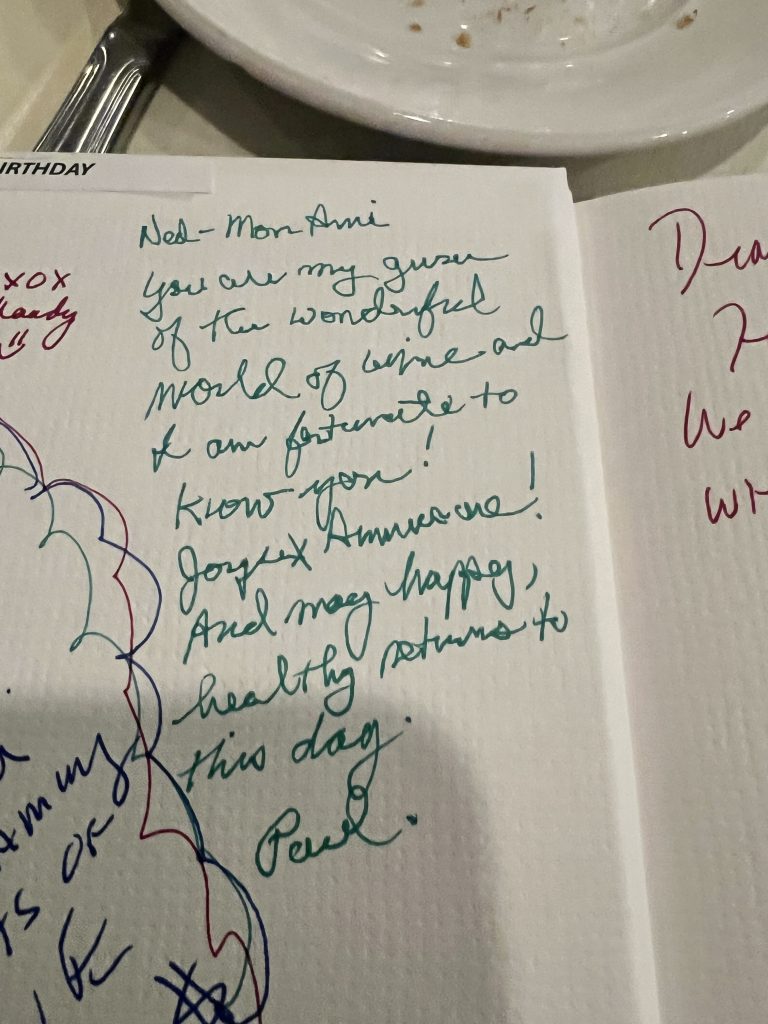 IRTHDAY
xox
Ned - Mon Ami
You are my guru
of the wonderful
world of wine and
I am fortunate to
know you!
Joyeux Anniversaire!
And may happy,
healthy returns to
this day.
Paul.
We
OF